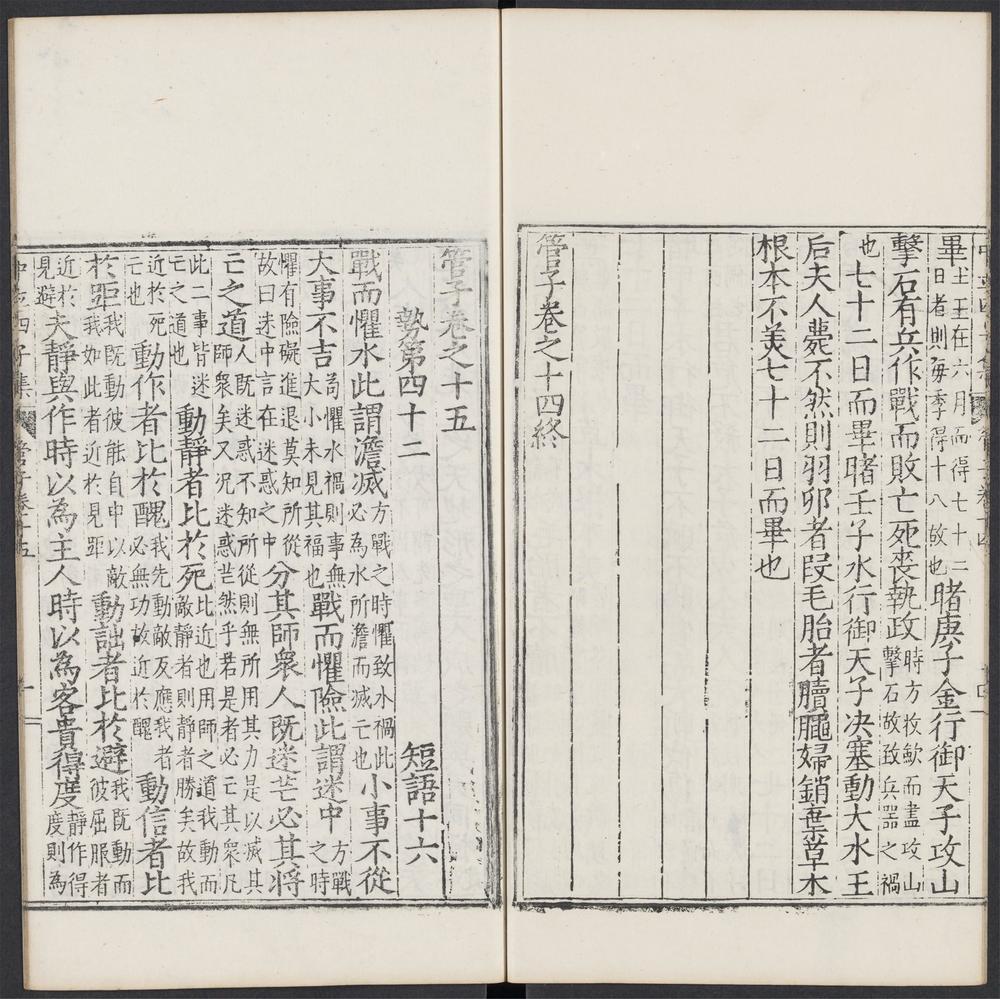 畢土王在六月而得七十二日者則每季得十八故也睹庚子金行御天子攻山
擊石有兵作戰而敗亡死喪執政時方收歛而盡攻山擊石故致兵器之禍
也七十二日而畢睹壬子水行御天子决塞動大水王
后夫人薨不然則羽卵者段毛胎者贕婦銷棄草木
根本不美七十二日而畢也
管子卷之十四終
管子卷之十五
勢第四十二 短語十六
戰而懼水此謂澹滅方戰之時懼致水禍此必為水所澹而滅亡也小事不從
大事不吉苟懼水禍則事無大小未見其福也戰而懼險此謂迷中方戰之時
懼有險礙進退莫知所從故曰迷中言在迷惑之中分其師衆人既迷芒必其將
亡之道人既迷惑不知所從則無所用其力是以滅其師衆矣又况迷惑芒然乎若是者必亡其衆凡
此二事皆迷亡之道也動靜者比於死比近也用師之道我動而敵靜者則靜者勝矣故我
近於死亡也動作者比於醜我先動敵反應我者必無功故近於醜動信者比
於距我既動彼能自申以敵我如此者近於見距動詘者比於避我既動而彼屈服者
近於見避夫靜與作時以為主人時以為客貴得度靜作得度則為
中立四子集 管子卷十五